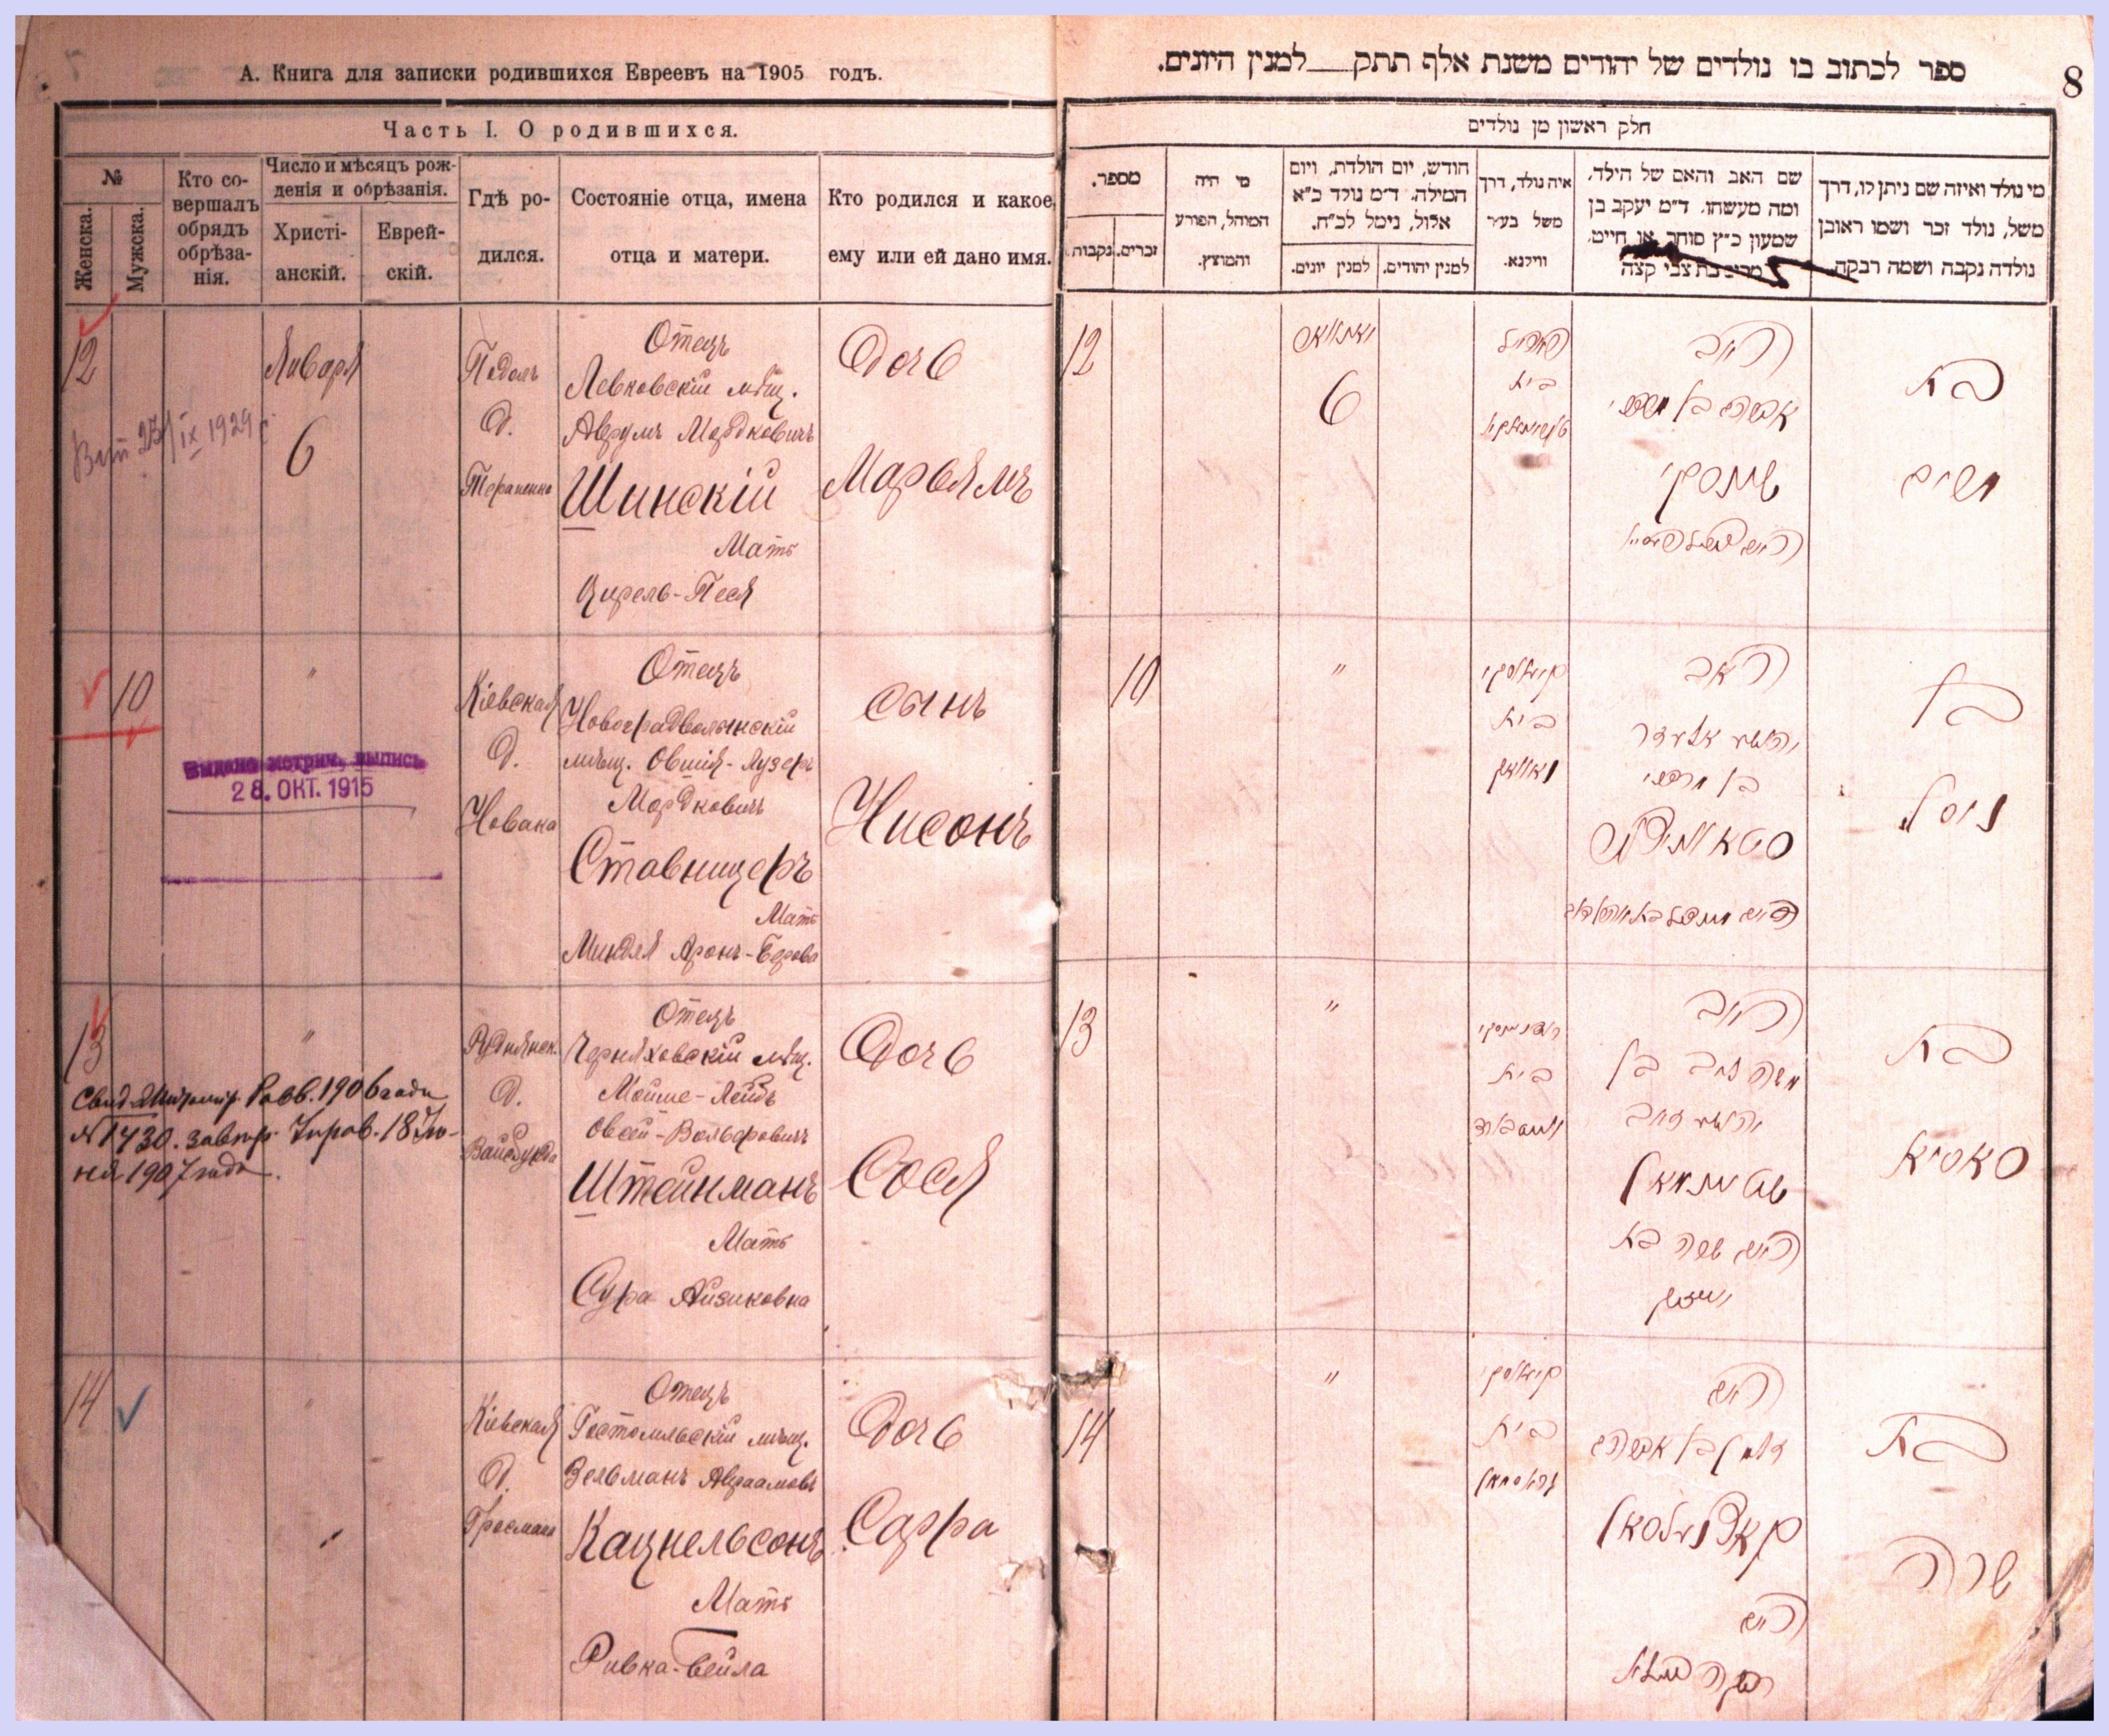 А. Книга для записки родившихся Евреевъ на 1905 годъ.
Часть I. О родившихся.
№
Женска.
Мужска.
Кто со-
вершалъ
обрядъ
обрѣза-
нія.
Число и мѣсяцъ рож-
денія и обрѣзанія.
Христі-
анскій.
Еврей-
скій.
Гдѣ ро-
дился.
Состояніе отца, имена
отца и матери.
Кто родился и какое
ему или ей дано имя.
12
Января
6
Подолъ
д.
Отецъ
Левковскій мѣщ.
Аврумъ Мордковичъ
Шинскій
Мать
Цирель-Песя
Дочь
Марьямъ
10
"
Выдана метрич. выпись
28. ОКТ. 1915
Кіевская
д.
Новака
Отецъ
Новоградволынскій
мѣщ. Овшія-Лузеръ
Мордковичъ
Ставницеръ
Мать
Миндля Аронъ-Берова
сынъ
Нисонъ
13
"
1906 года
№ 1430. 18 Ию-
ня 1907 года.
д.
Отецъ
Черняховскій мѣщ.
Мойше-Лейбъ
Овсей-Вольфовичъ
Штейнманъ
Мать
Сура Айзиковна
Дочь
Сося
14
"
Кіевская
д.
Гросмана
Отецъ
Гостомльскій мѣщ.
Зельманъ Авраамовъ
Кацнельсонъ
Мать
Ривка-Бейла
Дочь
Сарра
8
ספר לכתוב בו נולדים של יהודים משנת אלף תתק__למנין היונים.
חלק ראשון מן נולדים
מי נולד ואיזה שם ניתן לו, דרך
משל, נולד זכר ושמו ראובן
נולדה נקבה ושמה רבקה.
שם האב והאם של הילד,
ומה מעשהו. ד"מ יעקב בן
שמעון כ"ץ סוחר או חייט,
איה נולד, דרך
משל בעיר
ווילנא.
חודש, יום הולדת, ויום
המילה. ד"מ נולד כ"א
אלול, נימל לכ"ח.
למנין יהודים.
למנין יונים.
מי היה
המוהל, הפורע
והמוצץ.
מספר.
זכרים.
נקבות.
בת
מרים
האב
אברהם בן מרדכי
שינסקי
בית
6
12
בן
ניסן
האב
בן מרדכי
בית
נאוואק
"
10
בת
סאסיא
האב
משה ליב בן
שטיינמאן
האם שרה בת
אייזיק
בית
"
13
בת
שרה
האב
זלמן בן אברהם
קאצנעלסאן
האם
רבקה ביילא
בית
גראסמאן
"
14